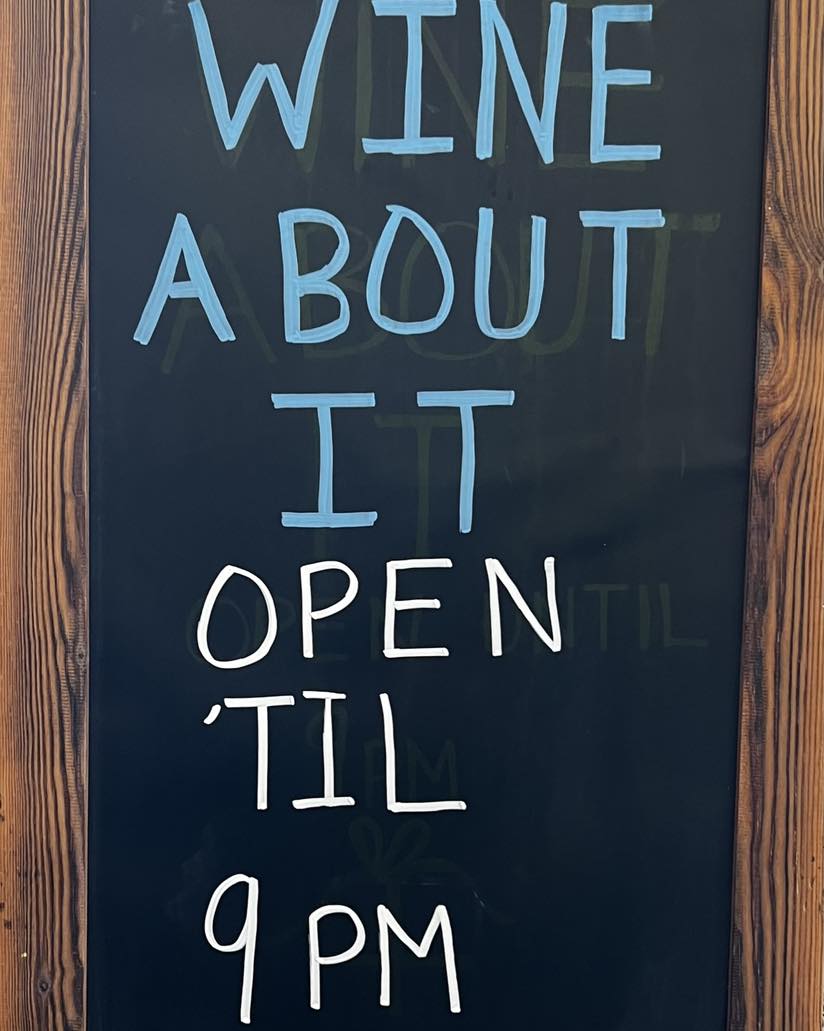 WINE
ABOUT
IT
OPEN
'TIL
9 PM